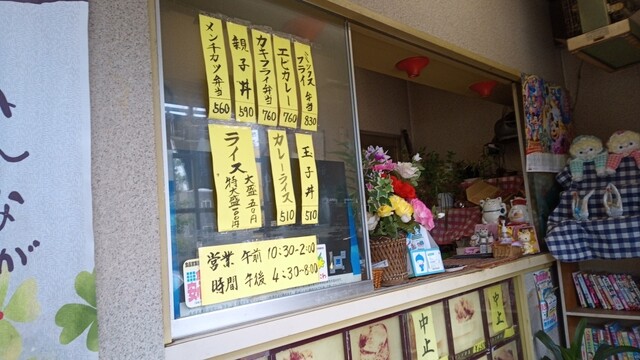 ミックス
フライ弁当 830
エビカレー 760
カキフライ弁当 760
親子丼 590
メンチカツ弁当 560
玉子丼 510
カレーライス 510
ライス 大盛 五〇円
特大盛 一〇〇円
営業 午前 10:30-2:00
時間 午後 4:30-8:00
中止
中止
みんな